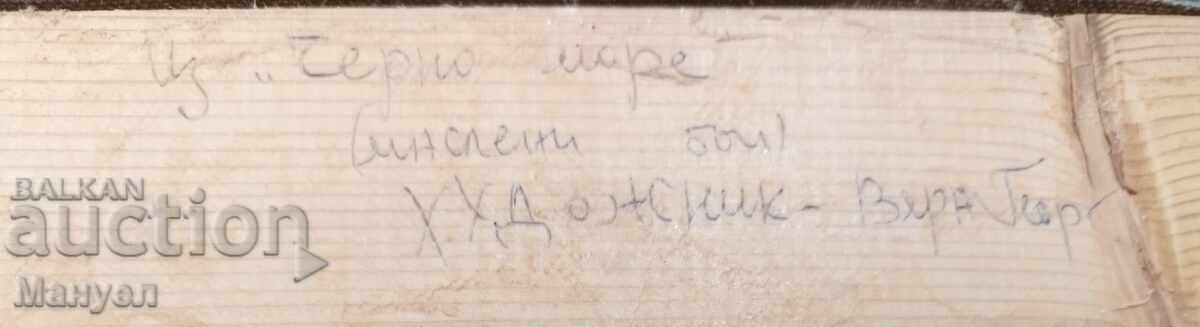 Из „Черно море“
(маслени бои)
ХУДожник -
BALKAN
auction
Мануел